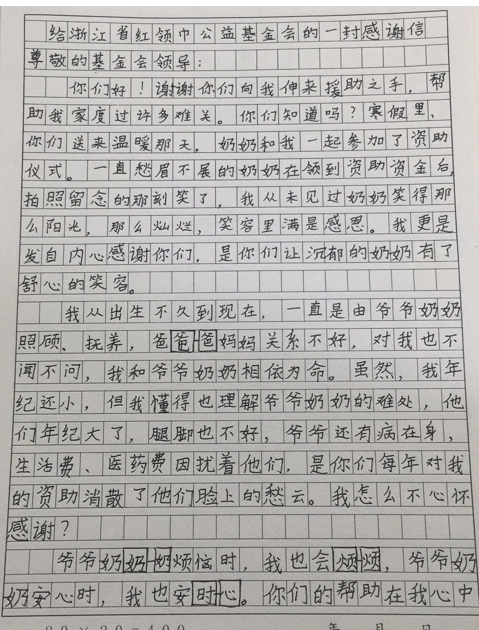 给浙江省红领巾公益基金会的一封感谢信
尊敬的基金会领导：
你们好！谢谢你们向我伸来援助之手，帮
助我家度过许多难关。你们知道吗？寒假里，
你们送来温暖那天，奶奶和我一起参加了资助
仪式。一直愁眉不展的奶奶在领到资助资金后，
拍照留念的那刻笑了，我从未见过奶奶笑得那
么阳光，那么灿烂，笑容里满是感恩。我更是
发自内心感谢你们，是你们让沉郁的奶奶有了
舒心的笑容。
我从出生不久到现在，一直是由爷爷奶奶
照顾、抚养，爸爸爸妈妈关系不好，对我也不
闻不问，我和爷爷奶奶相依为命。虽然，我年
纪还小，但我懂得也理解爷爷奶奶的难处，他
们年纪大了，腿脚也不好，爷爷还有病在身，
生活费、医药费困扰着他们，是你们每年对我
的资助消散了他们脸上的愁云。我怎么不心怀
感谢？
爷爷奶奶奶烦恼时，我也会烦烦，爷爷奶
奶安心时，我也安时心。你们的帮助在我心中
20×20=400 年 月 日